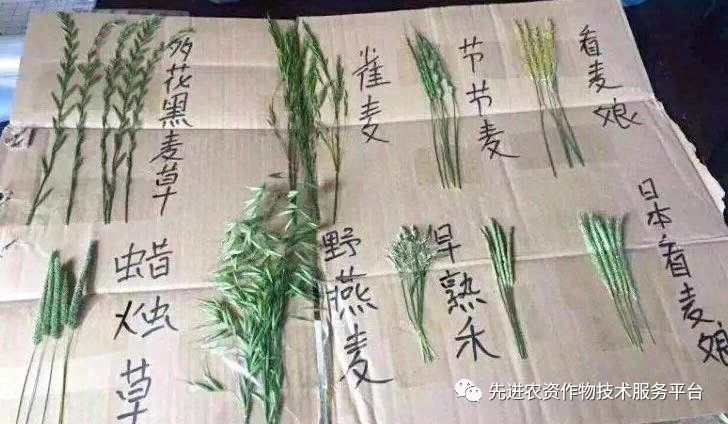 多花黑麦草
雀麦
节节麦
看麦娘
蜡烛草
野燕麦
早熟禾
日本看麦娘
先进农资作物技术服务平台